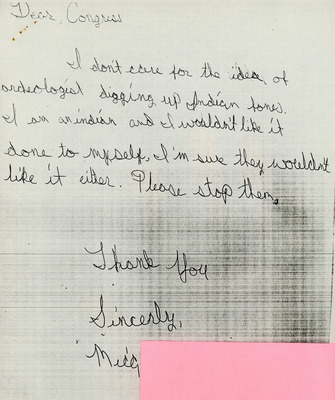 Dear, Congress
I don't care for the idea of
archeologist digging up Indian bones.
I am an indian and I wouldn't like it
done to myself, I'm sure they wouldn't
like it either. Please stop them.
Thank You
Sincerly,